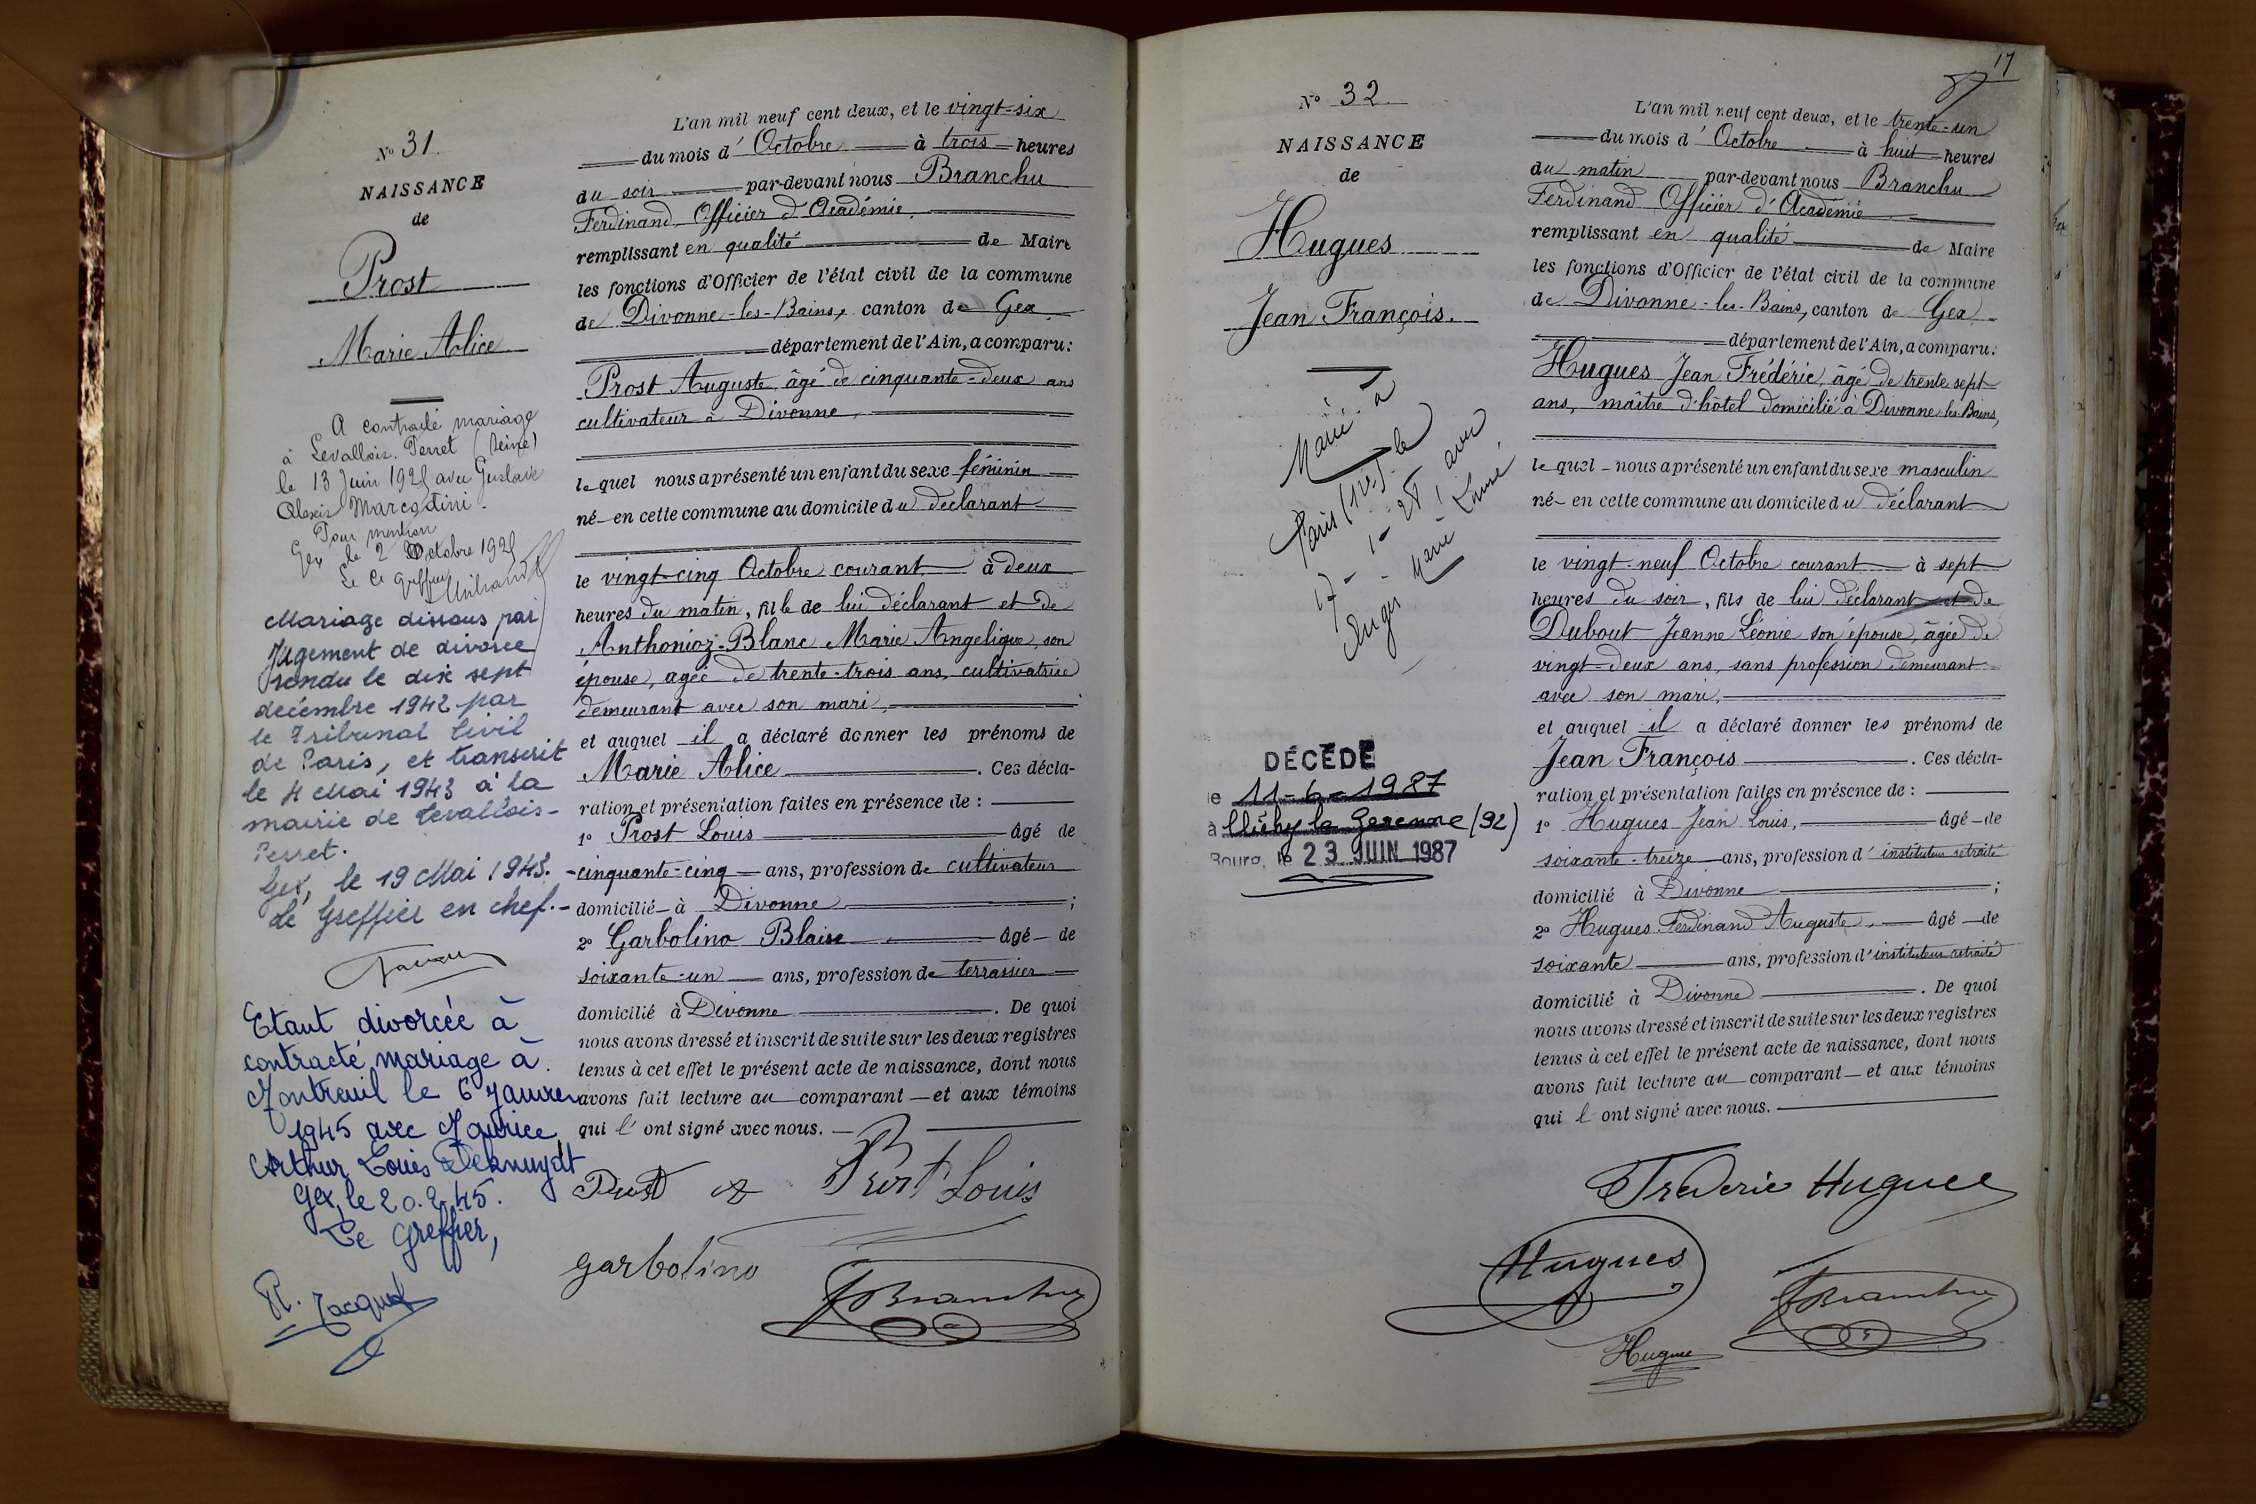 N° 31.
NAISSANCE
de
Prost
Marie Alice
A contracté mariage
à Levallois-Perret (Seine)
le 13 Juin 192 avec Gustave
Alexis Marcodini.
Pour mention
Gex le 2 Octobre 192
Le Cs Greffier
Mariage dissous par
Jugement de divorce
rendu le dix sept
decémbre 1942 par
le Tribunal Civil
de Paris, et transcrit
le 4 Mai 1943 à la
mairie de Levallois-
Perret.
Gex, le 19 Mai 1943.
Le Greffier en chef.
Etant divorcée à
contracté mariage à
Montreuil le 6 Janvier
1945 avec Maurice
Arthur Louis Deknuydt
Gex, le 20.2.45.
Le Greffier,
Jacquet
L'an mil neuf cent deux, et le vingt-six
du mois d'Octobre à trois heures
du soir par-devant nous Branchu
Ferdinand, Officier d'Académie,
remplissant en qualité de Maire
les fonctions d'Officier de l'état civil de la commune
de Divonne-les-Bains, canton de Gex,
département de l'Ain, a comparu:
Prost Auguste, âgé de cinquante-deux ans
cultivateur à Divonne,
lequel nous a présenté un enfant du sexe féminin
né en cette commune au domicile du déclarant
le vingt-cinq Octobre courant à deux
heures du matin, fille de lui déclarant et de
Anthonioz-Blanc Marie Angelique, son
épouse, agée de trente-trois ans, cultivatrice
demeurant avec son mari,
et auquel il a déclaré donner les prénoms de
Marie Alice. Ces décla-
ration et présentation faites en présence de :
1° Prost Louis âgé de
cinquante-cinq ans, profession de cultivateur
domicilié à Divonne ;
2° Garbolino Blaise âgé de
soixante-un ans, profession de terrassier
domicilié à Divonne. De quoi
nous avons dressé et inscrit de suite sur les deux registres
tenus à cet effet le présent acte de naissance, dont nous
avons fait lecture au comparant et aux témoins
qui l'ont signé avec nous.
Prost Prost Louis
Garbolino FBranchu
17
N° 32
NAISSANCE
de
Hugues
Jean François.
Marié à
Paris (12e) le
17-1-28 avec
Auger Marie Louise
DÉCÉDÉ
le 11-6-1987
à Clichy la Garenne (92)
Bourg, le 23 JUIN 1987
L'an mil neuf cent deux, et le trente-un
du mois d'Octobre à huit heures
du matin par-devant nous Branchu
Ferdinand Officier d'Académie
remplissant en qualité de Maire
les fonctions d'Officier de l'état civil de la commune
de Divonne-les-Bains, canton de Gex
département de l'Ain, a comparu:
Hugues Jean Frédéric, âgé de trente sept
ans, maître d'hôtel domicilié à Divonne les Bains,
lequel nous a présenté un enfant du sexe masculin
né en cette commune au domicile du déclarant
le vingt-neuf Octobre courant à sept
heures du soir, fils de lui déclarant et de
Dubout Jeanne Léonie son épouse, âgée de
vingt-deux ans, sans profession demeurant
avec son mari,
et auquel il a déclaré donner les prénoms de
Jean François. Ces décla-
ration et présentation faites en présence de :
1° Hugues Jean Louis, âgé de
soixante-treize ans, profession d'instituteur retraité
domicilié à Divonne ;
2° Hugues Ferdinand Auguste, âgé de
soixante ans, profession d'instituteur retraité
domicilié à Divonne. De quoi
nous avons dressé et inscrit de suite sur les deux registres
tenus à cet effet le présent acte de naissance, dont nous
avons fait lecture au comparant et aux témoins
qui l'ont signé avec nous.
Frederic Hugues
Hugues FBranchu
Hugues